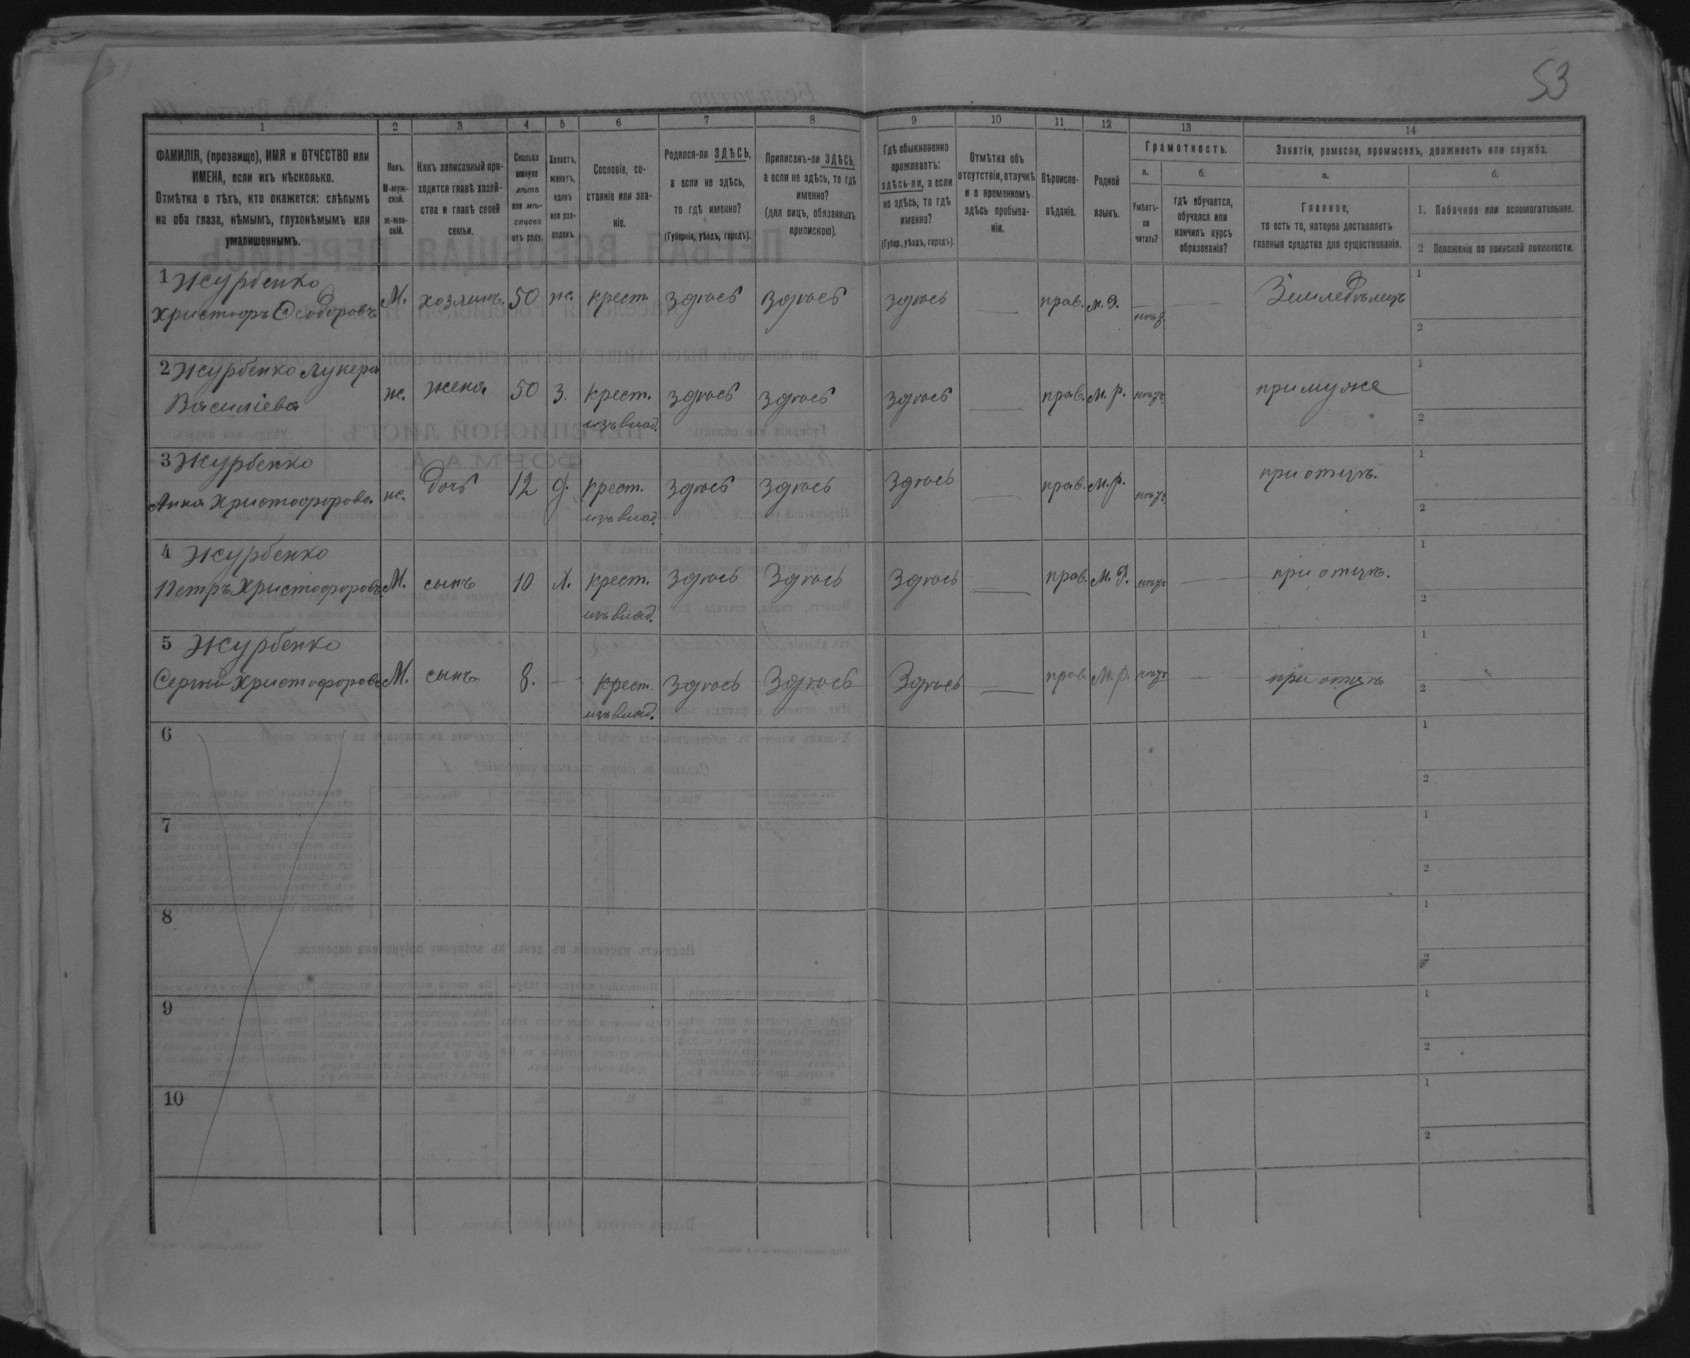 53
1
2
3
4
5
6
7
8
9
10
11
12
13
14
ФАМИЛІЯ, (прозвище), ИМЯ и ОТЧЕСТВО или
ИМЕНА, если ихъ нѣсколько.
Отмѣтка о тѣхъ, кто окажется: слѣпымъ
на оба глаза, нѣмымъ, глухонѣмымъ или
умалишеннымъ.
Полъ.
М-муж-
ской.
ж-жен-
скій.
Какъ записанный при-
ходится главѣ хозяй-
ства и главѣ своей
семьи.
Сколько
минуло
лѣтъ
или мѣ-
сяцевъ
отъ роду.
Холостъ,
женатъ,
вдовъ
или раз-
веденъ.
Сословіе, со-
стояніе или зва-
ніе.
Родился-ли ЗДѢСЬ,
а если не здѣсь,
то гдѣ именно?
(Губернія, уѣздъ, городъ).
Приписанъ-ли ЗДѢСЬ,
а если не здѣсь, то гдѣ
именно?
(для лицъ, обязанныхъ
припискою).
Гдѣ обыкновенно
проживаетъ:
здѣсь-ли, а если
не здѣсь, то гдѣ
именно?
(Губер., уѣздъ, городъ).
Отмѣтка объ
отсутствіи, отлучкѣ
и о временномъ
здѣсь пребыва-
ніи.
Вѣроиспо-
вѣданіе.
Родной
языкъ.
Грамотность.
а.
Умѣетъ-
ли
читать?
б.
гдѣ обучается,
обучался или
кончилъ курсъ
образованія?
Занятіе, ремесло, промыселъ, должность или служба.
а.
Главное,
то есть то, которое доставляетъ
главныя средства для существованія.
б.
1. Побочное или вспомогательное.
2 Положеніе по воинской повинности.
1 Журбенко
Христофоръ Ѳеодоровъ М. хозяинъ 50 ж. крест. здѣсь здѣсь здѣсь — прав. м. р. нѣтъ — Земледѣлецъ
1
2
2 Журбенко Лукера
Василіева ж. жена 50 з. крест. здѣсь здѣсь здѣсь — прав. м. р. нѣтъ при муже
изъ влад.
1
2
3 Журбенко
Анна Христофорова ж. дочь 12 д. крест. здѣсь здѣсь здѣсь — прав. м. р. нѣтъ при отцѣ.
изъ влад.
1
2
4 Журбенко
Петръ Христофоровъ М. сынъ 10 х. крест. здѣсь здѣсь здѣсь — прав. м. р. нѣтъ — при отцѣ.
изъ влад.
1
2
5 Журбенко
Сергѣй Христофоровъ М. сынъ 8. — крест. здѣсь здѣсь здѣсь — прав. м. р. нѣтъ — при отцѣ
изъ влад.
1
2
6
1
2
7
1
2
8
1
2
9
1
2
10
1
2